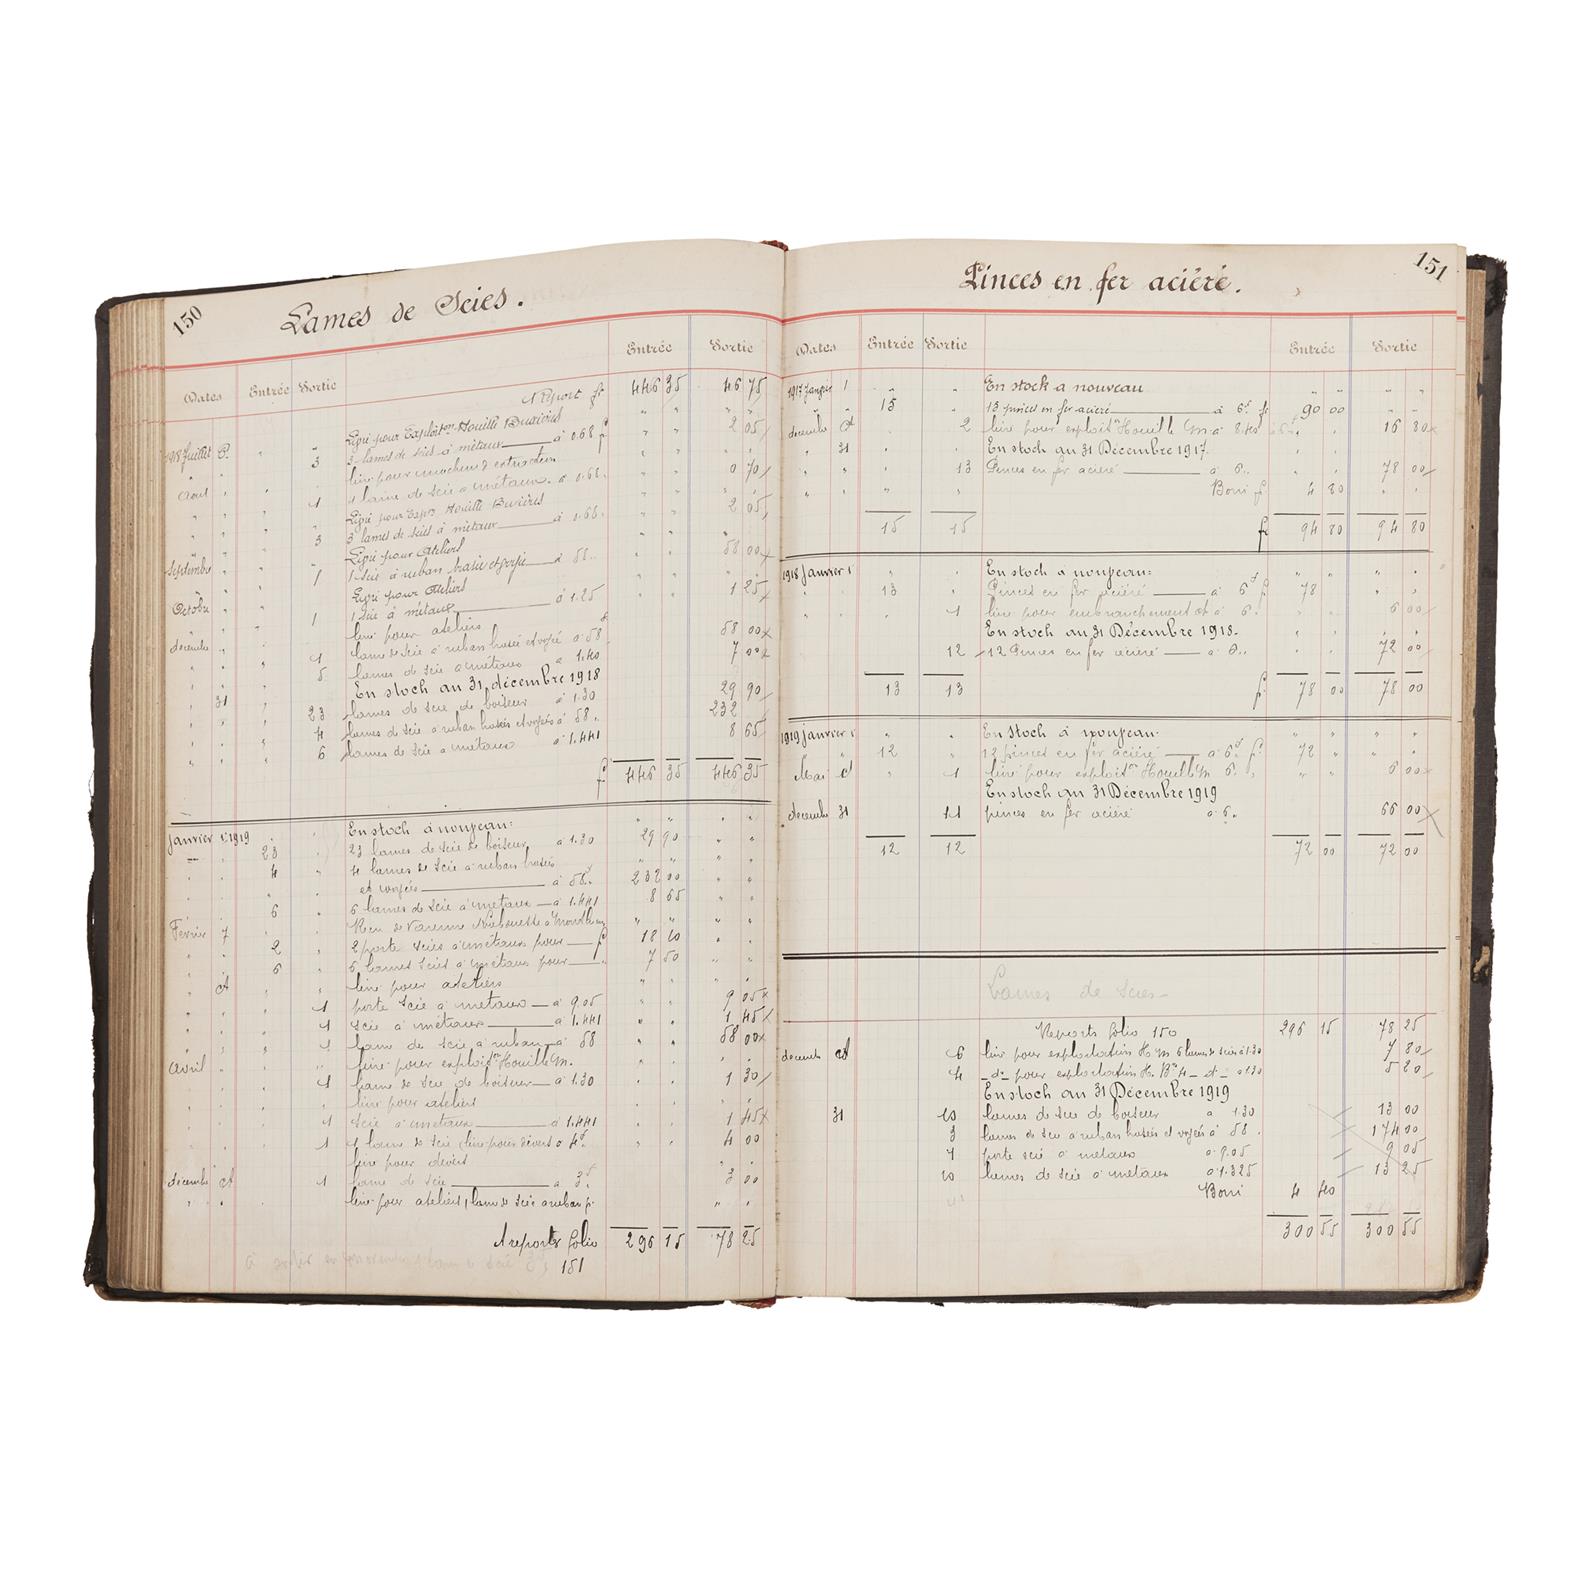 150
Lames de Scies.
Dates Entrée Sortie Entrée Sortie
Report fr 446 35 46 75
Livré pour Exploiton Houille
1918 Juillet 3 3 lames de scies à métaux à 0.68 f 2 05
livré pour
Aout 1 1 lame de scie à métaux à 0.68 0 70
Livré pour Houille
3 3 lames de scies à métaux à 0.68 2 05
Livré pour Ateliers
Septembre 1 1 scie à ruban à 58 58 00
Livré pour Ateliers
Octobre 1 1 scie à métaux à 1.25 1 25
livré pour ateliers
décembre 1 lame de scie à ruban et voyé à 58 58 00
5 lames de scie à métaux à 1.40 7 00
En stoch au 31 décembre 1918
31 23 lames de scie de boiseur à 1.30 29 90
4 lames de scie à ruban et voyés à 58 232
6 lames de scie à métaux à 1.441 8 65
f 446 35 446 35
Janvier 1 1919 En stoch à nouveau:
23 23 lames de scie de boiseur à 1.30 29 90
4 4 lames de scie à ruban
et voyés à 58 232 00
6 6 lames de scie à métaux à 1.441 8 65
Février 7
2 2 porte scies à métaux pour f 18 10
6 6 lames scies à métaux pour 7 50
ct livré pour ateliers
1 porte scie à métaux à 9.05 9 05
1 scie à métaux à 1.441 1 45
1 lame de scie à ruban à 58 58 00
Avril livré pour exploiton Houille M.
1 lame de scie de boiseur à 1.30 1 30
livré pour ateliers
1 scie à métaux à 1.441 1 45
1 1 lame de scie livré pour divers à 4f 4 00
livré pour divers
décembre ct 1 lame de scie à 3f 3 00
livré pour ateliers 1 lame de scie à ruban p.
A reporter folio 296 15 78 25
151
151
Pinces en fer acieré.
Dates Entrée Sortie Entrée Sortie
1917 Janvier 1 En stock a nouveau
15 15 pinces en fer acieré à 6f fr 90 00
décembre ct 2 livré pour exploiton Houille M. à 8.40 16 80
31 En stoch au 31 Décembre 1917.
13 Pinces en fer acieré à 6 78 00
Boni f 4 80
15 15 fr 94 80 94 80
1918 Janvier 1 En stoch à nouveau:
13 Pinces en fer acieré à 6f f 78
1 livré pour embranchement ct à 6. 6 00
En stoch au 31 Décembre 1918.
12 12 Pinces en fer acieré à 6 72 00
13 13 f 78 00 78 00
1919 Janvier 1 En stoch à nouveau:
12 12 pinces en fer acieré à 6f f 72
Mai ct 1 livré pour exploiton Houille M 6. 6 00
En stoch au 31 Décembre 1919
décembre 31 11 pinces en fer acieré à 6. 66 00
12 12 72 00 72 00
Lames de Scies
Reports folio 150 296 15 78 25
décembre ct 6 livré pour exploitation H. M 6 lames de scies à 1.30 7 80
4 do pour exploitation H. Bre 4 d 1.30 5 20
En stoch au 31 Décembre 1919
31 10 lames de scie de boiseur à 1.30 13 00
3 lames de scie à ruban et voyés à 58. 174 00
1 porte scie à métaux à 9.05 9 05
10 lames de scie à métaux à 1.325 13 25
Boni 4 40
300 55 300 55